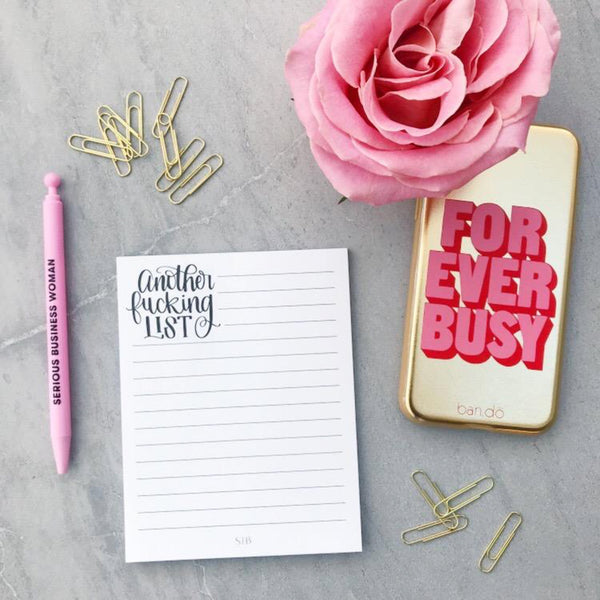 another
fucking
LIST
SERIOUS BUSINESS WOMAN
FOR
EVER
BUSY
ban.dō